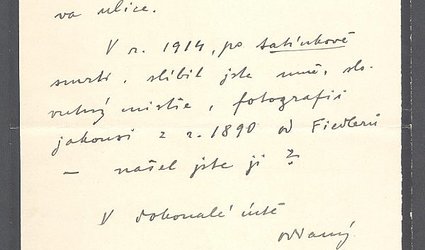 va ulice.
V r. 1914, po tatínkově
smrti, slíbil jste mně, slo-
vutný mistře, fotografii
jakousi z r. 1890 od Fiedlerů
– našel jste ji?
V dokonalé úctě
oddaný